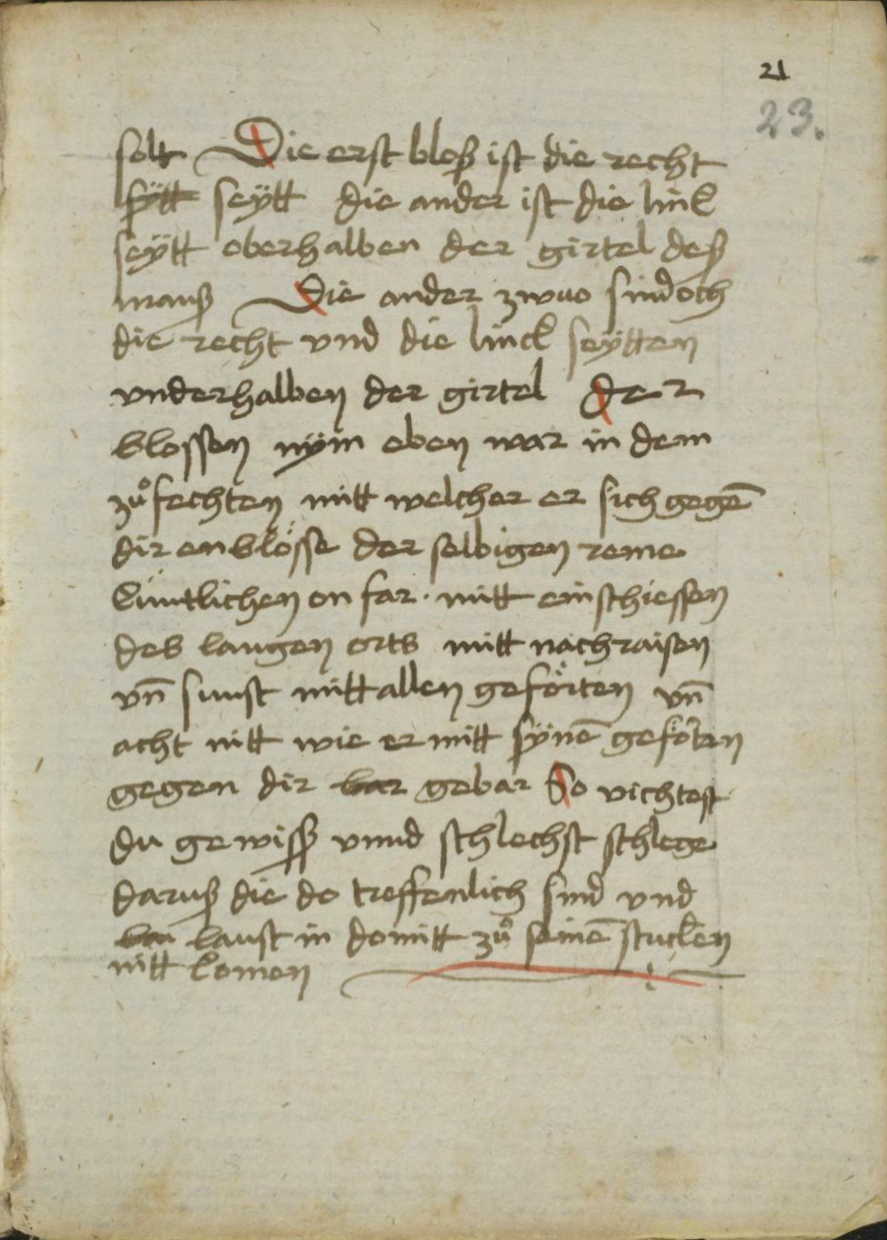 21
23.
solt Die erst bloß ist die recht
sytt seÿtt die ander ist die linck
seÿtt oberhalben der girtel deß
manß Die ander zwuo sind och
die recht vnd die linck seÿtten
vnderhalben der girtel der
blossen nÿm eben war in dem
zuͦfechten mitt welcher er sich gegē
dir enblösse der selbigen reme
künlichen on far · mitt einschiessen
des langen orts mitt nachraisen
vn̄ sunst mitt allen geförten vn̄
acht nitt wie er mitt sÿnē geförten
gegen dir bar gebar So vichtest
du gewiß vnnd schlechst schlege
daruß die do treffenlich sind vnd
laust in domitt zuͦ seinē stucken
nitt komen